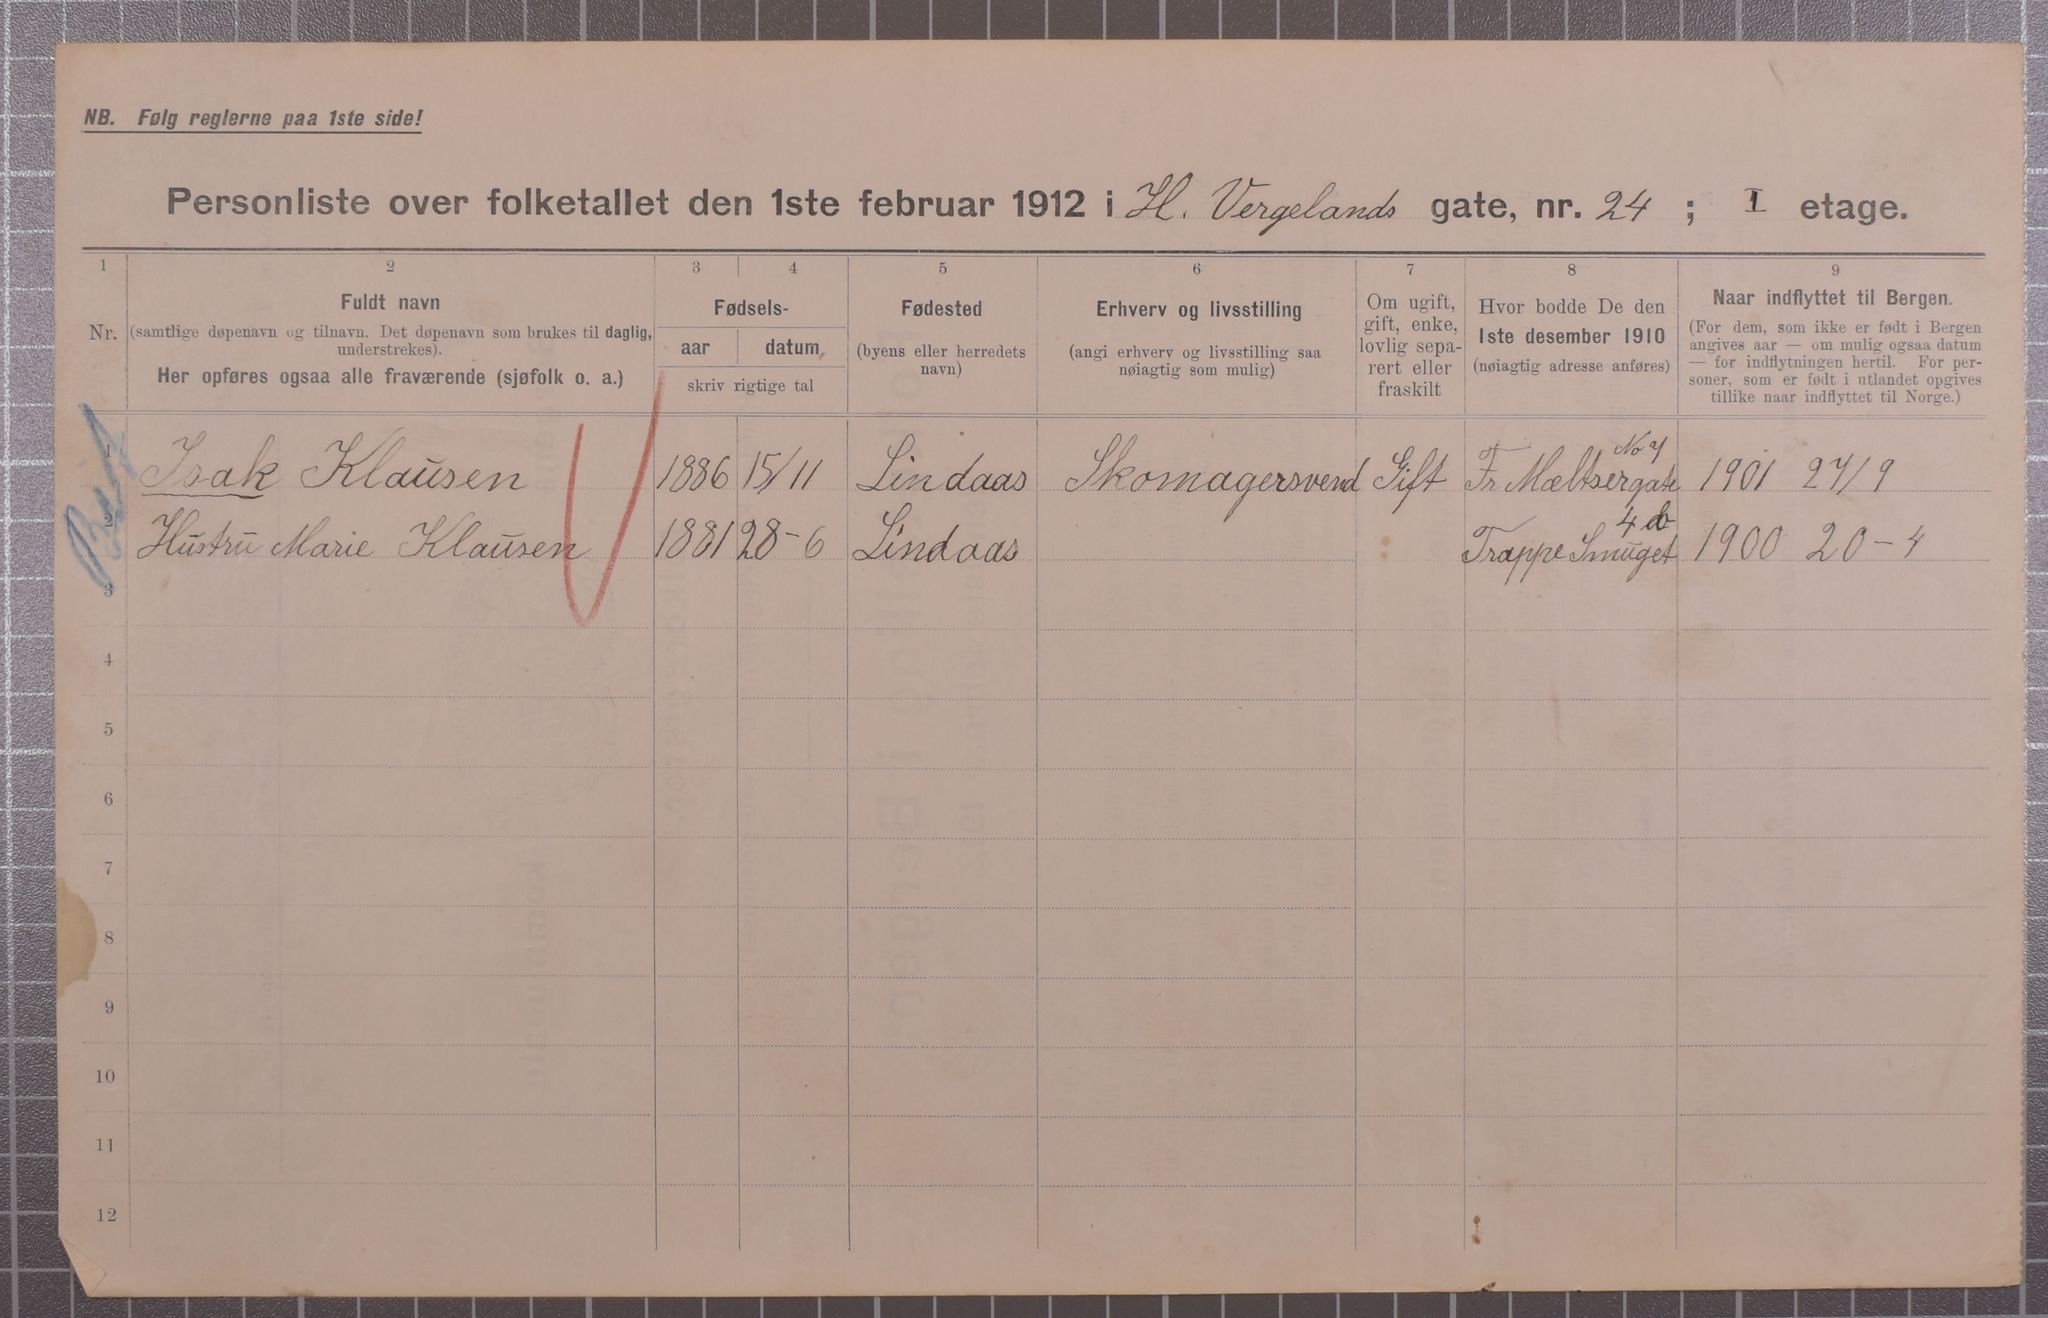 NB. Følg reglerne paa 1ste side!
Personliste over folketallet den 1ste februar 1912 i H. Vergelands gate, nr. 24 ; I etage.
1 2 3 4 5 6 7 8 9
Nr.
Fuldt navn
(samtlige døpenavn og tilnavn. Det døpenavn som brukes til daglig,
understrekes).
Her opføres ogsaa alle fraværende (sjøfolk o. a.)
Fødsels-
aar datum
skriv rigtige tal
Fødested
(byens eller herredets
navn)
Erhverv og livsstilling
(angi erhverv og livsstilling saa
nøiagtig som mulig)
Om ugift,
gift, enke,
lovlig sepa-
rert eller
fraskilt
Hvor bodde De den
1ste desember 1910
(nøiagtig adresse anføres)
Naar indflyttet til Bergen.
(For dem, som ikke er født i Bergen
angives aar — om mulig ogsaa datum
— for indflytningen hertil. For per-
soner, som er født i utlandet opgives
tillike naar indflyttet til Norge.)
1 Isak Klausen 1886 15/11 Lindaas Skomagersvend Gift Fr Mæltsergate 1901 27/9
2 Hustru Marie Klausen 1881 28-6 Lindaas Trappe Smuget 1900 20-4
3
4
5
6
7
8
9
10
11
12